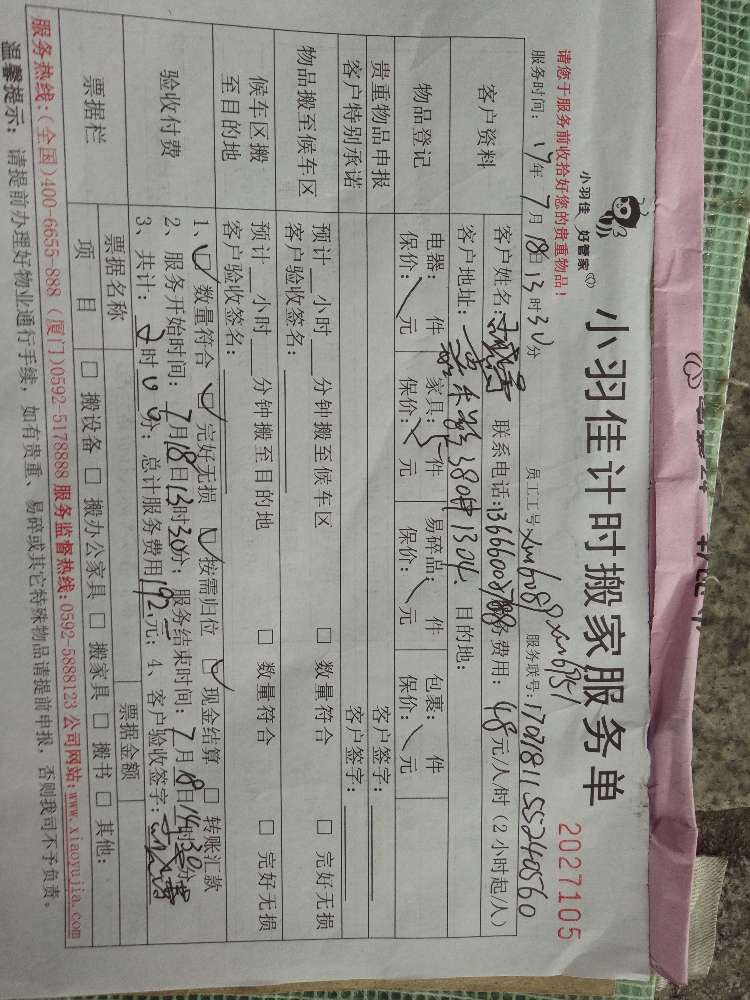 小羽佳 好管家
小羽佳计时搬家服务单
2027105
请您于服务前收拾好您的贵重物品！
员工工号: xm6089 xm6351 服务联号: 1707181155240560
服务时间: 17年7月18日13时30分
客户资料
客户姓名: 联系电话: 服务费用: 48元/人/时（2小时起/人）
客户地址: 380# 1304. 目的地:
物品登记
电器: 件 家具: 件 易碎品: 件 包裹: 件
保价: \ 元 保价: \ 元 保价: \ 元 保价: \ 元
贵重物品申报
客户签字:
客户特别承诺
客户签字:
物品搬至候车区
预计 小时 分钟搬至候车区 □ 数量符合 □ 完好无损
客户验收签名:
候车区搬至目的地
预计 小时 分钟搬至目的地 □ 数量符合 □ 完好无损
客户验收签名:
验收付费
1、☑ 数量符合 ☑ 完好无损 ☑ 按需归位 ☑ 现金结算 □ 转账汇款
2、服务开始时间: 7月18日13时30分; 服务结束时间: 7月18日14时30分
3、共计: 2时00分; 总计服务费用192元; 4、客户验收签字:
票据栏
票据名称 票据金额
项 目 □ 搬设备 □ 搬办公家具 □ 搬家具 □ 搬书 □ 其他:
服务热线:(全国)400-6655-888 (厦门)0592-5178888 服务监督热线:0592-5888123 公司网站:www.xiaoyujia.com
温馨提示: 请提前办理好物业通行手续，如有贵重、易碎或其它特殊物品请提前申报，否则我司不予负责。